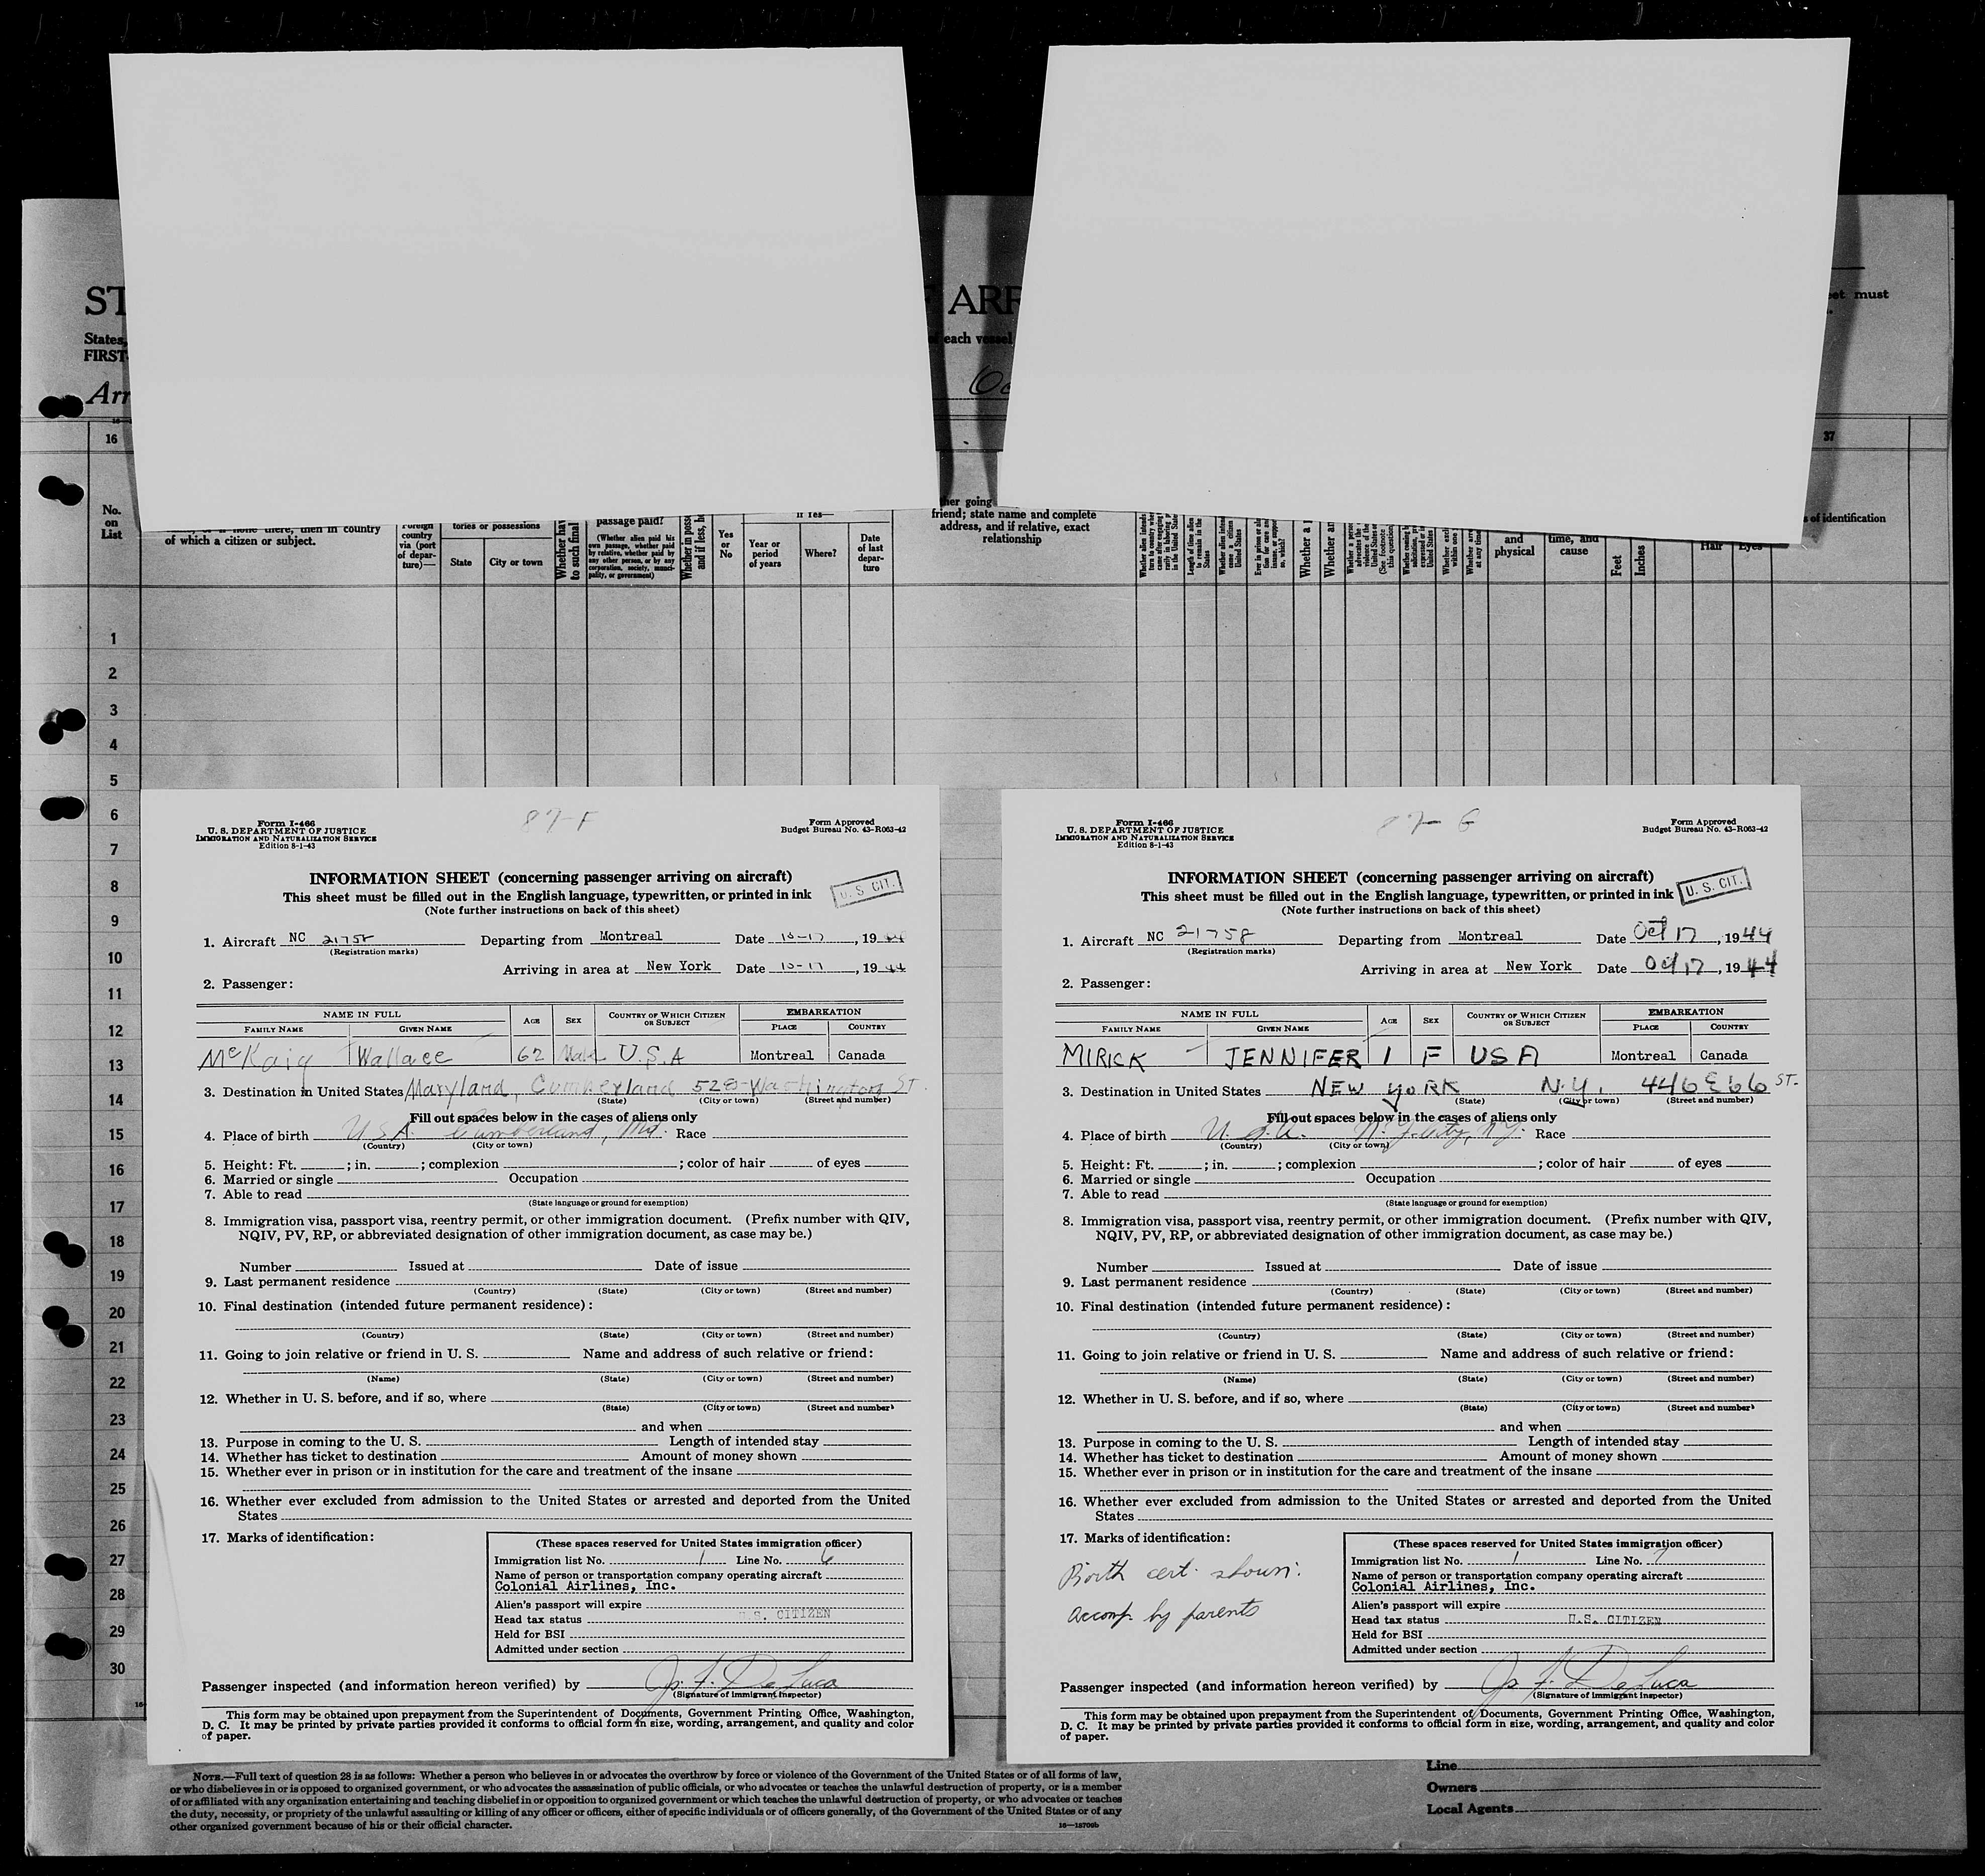 ST
ARR
et must
States,
each vessel
FIRST-
Arr
16
37
No.
on
List
there, then in country
of which a citizen or subject.
Foreign
country
via (port
of depar-
ture)—
tories or possessions
State
City or town
Whether hav
to such final
passage paid?
(Whether alien paid his
own passage, whether paid
by relative, whether paid by
any other person, or by any
corporation, society, munici-
pality, or government)
Whether in posse
and if less, h
Yes
or
No
If Yes—
Year or
period
of years
Where?
Date
of last
depar-
ture
her going
friend; state name and complete
address, and if relative, exact
relationship
Whether a
Whether a
and
physical
time, and
cause
Feet
Inches
Hair
Eyes
s of identification
1
2
3
4
5
6
7
8
9
10
11
12
13
14
15
16
17
18
19
20
21
22
23
24
25
26
27
28
29
30
87-F
Form I-466
U. S. DEPARTMENT OF JUSTICE
IMMIGRATION AND NATURALIZATION SERVICE
Edition 8-1-43
Form Approved
Budget Bureau No. 43-R063-42
INFORMATION SHEET (concerning passenger arriving on aircraft)
This sheet must be filled out in the English language, typewritten, or printed in ink
U. S. CIT.
(Note further instructions on back of this sheet)
1. Aircraft NC 21758 Departing from Montreal Date 10-17, 1944
(Registration marks)
Arriving in area at New York Date 10-17, 1944
2. Passenger:
NAME IN FULL AGE SEX COUNTRY OF WHICH CITIZEN OR SUBJECT EMBARKATION
FAMILY NAME GIVEN NAME PLACE COUNTRY
McKaig Wallace 62 Male U.S.A Montreal Canada
3. Destination in United States Maryland, Cumberland 528 Washington ST.
(State) (City or town) (Street and number)
Fill out spaces below in the cases of aliens only
4. Place of birth U.S.A. Cumberland, Md. Race
(Country) (City or town)
5. Height: Ft. ; in. ; complexion ; color of hair of eyes
6. Married or single Occupation
7. Able to read
(State language or ground for exemption)
8. Immigration visa, passport visa, reentry permit, or other immigration document. (Prefix number with QIV,
NQIV, PV, RP, or abbreviated designation of other immigration document, as case may be.)
Number Issued at Date of issue
9. Last permanent residence
(Country) (State) (City or town) (Street and number)
10. Final destination (intended future permanent residence):
(Country) (State) (City or town) (Street and number)
11. Going to join relative or friend in U. S. Name and address of such relative or friend:
(Name) (State) (City or town) (Street and number)
12. Whether in U. S. before, and if so, where
(State) (City or town) (Street and number)
and when
13. Purpose in coming to the U. S. Length of intended stay
14. Whether has ticket to destination Amount of money shown
15. Whether ever in prison or in institution for the care and treatment of the insane
16. Whether ever excluded from admission to the United States or arrested and deported from the United
States
17. Marks of identification:
(These spaces reserved for United States immigration officer)
Immigration list No. 1 Line No. 6
Name of person or transportation company operating aircraft
Colonial Airlines, Inc.
Alien's passport will expire
Head tax status U.S. CITIZEN
Held for BSI
Admitted under section
Passenger inspected (and information hereon verified) by Js. F. De Luca
(Signature of immigrant inspector)
This form may be obtained upon prepayment from the Superintendent of Documents, Government Printing Office, Washington,
D. C. It may be printed by private parties provided it conforms to official form in size, wording, arrangement, and quality and color
of paper.
87-G
Form I-466
U. S. DEPARTMENT OF JUSTICE
IMMIGRATION AND NATURALIZATION SERVICE
Edition 8-1-43
Form Approved
Budget Bureau No. 43-R063-42
INFORMATION SHEET (concerning passenger arriving on aircraft)
This sheet must be filled out in the English language, typewritten, or printed in ink
U. S. CIT.
(Note further instructions on back of this sheet)
1. Aircraft NC 21758 Departing from Montreal Date Oct 17, 1944
(Registration marks)
Arriving in area at New York Date Oct 17, 1944
2. Passenger:
NAME IN FULL AGE SEX COUNTRY OF WHICH CITIZEN OR SUBJECT EMBARKATION
FAMILY NAME GIVEN NAME PLACE COUNTRY
MIRICK JENNIFER 1 F USA Montreal Canada
3. Destination in United States NEW YORK N.Y. 446 E 66 ST.
(State) (City or town) (Street and number)
Fill out spaces below in the cases of aliens only
4. Place of birth U.S.A. N.Y. City, N.Y. Race
(Country) (City or town)
5. Height: Ft. ; in. ; complexion ; color of hair of eyes
6. Married or single Occupation
7. Able to read
(State language or ground for exemption)
8. Immigration visa, passport visa, reentry permit, or other immigration document. (Prefix number with QIV,
NQIV, PV, RP, or abbreviated designation of other immigration document, as case may be.)
Number Issued at Date of issue
9. Last permanent residence
(Country) (State) (City or town) (Street and number)
10. Final destination (intended future permanent residence):
(Country) (State) (City or town) (Street and number)
11. Going to join relative or friend in U. S. Name and address of such relative or friend:
(Name) (State) (City or town) (Street and number)
12. Whether in U. S. before, and if so, where
(State) (City or town) (Street and number)
and when
13. Purpose in coming to the U. S. Length of intended stay
14. Whether has ticket to destination Amount of money shown
15. Whether ever in prison or in institution for the care and treatment of the insane
16. Whether ever excluded from admission to the United States or arrested and deported from the United
States
17. Marks of identification:
Birth cert. shown.
Accomp. by parents
(These spaces reserved for United States immigration officer)
Immigration list No. 1 Line No. 7
Name of person or transportation company operating aircraft
Colonial Airlines, Inc.
Alien's passport will expire
Head tax status U.S. CITIZEN
Held for BSI
Admitted under section
Passenger inspected (and information hereon verified) by Js. F. De Luca
(Signature of immigrant inspector)
This form may be obtained upon prepayment from the Superintendent of Documents, Government Printing Office, Washington,
D. C. It may be printed by private parties provided it conforms to official form in size, wording, arrangement, and quality and color
of paper.
NOTE.—Full text of question 28 is as follows: Whether a person who believes in or advocates the overthrow by force or violence of the Government of the United States or of all forms of law,
or who disbelieves in or is opposed to organized government, or who advocates the assassination of public officials, or who advocates or teaches the unlawful destruction of property, or is a member
of or affiliated with any organization entertaining and teaching disbelief in or opposition to organized government or which teaches the unlawful destruction of property, or who advocates or teaches
the duty, necessity, or propriety of the unlawful assaulting or killing of any officer or officers, either of specific individuals or of officers generally, of the Government of the United States or of any
other organized government because of his or their official character.
16—18709b
Line
Owners
Local Agents